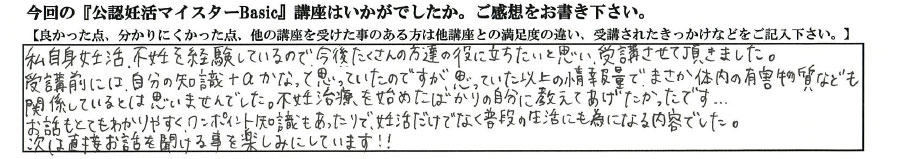 今回の『公認妊活マイスターBasic』講座はいかがでしたか。ご感想をお書き下さい。
【良かった点、分かりにくかった点、他の講座を受けた事のある方は他講座との満足度の違い、受講されたきっかけなどをご記入下さい。】
私自身妊活、不妊を経験しているので今後たくさんの方達の役に立ちたいと思い、受講させて頂きました。
受講前には、自分の知識+αかなって思っていたのですが思っていた以上の情報量でまさか体内の有害物質なども
関係しているとは思いませんでした。不妊治療を始めたばかりの自分に教えてあげたかったです…
お話もとてもわかりやすくワンポイント知識もあったりで、妊活だけでなく普段の生活にも為になる内容でした。
次は直接お話を聞ける事を楽しみにしています!!